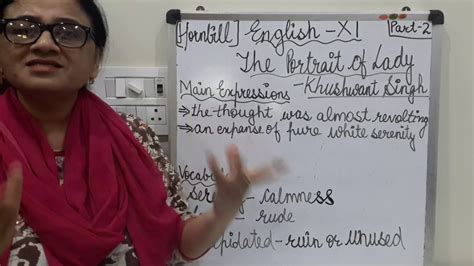 [Hornbill] English - XI
Part-2
The Portrait of Lady
Main Expressions - Khushwant Singh
⇒ the thought was almost revolting
⇒ an expanse of pure white serenity
- calmness
rude
- ruin or Unused